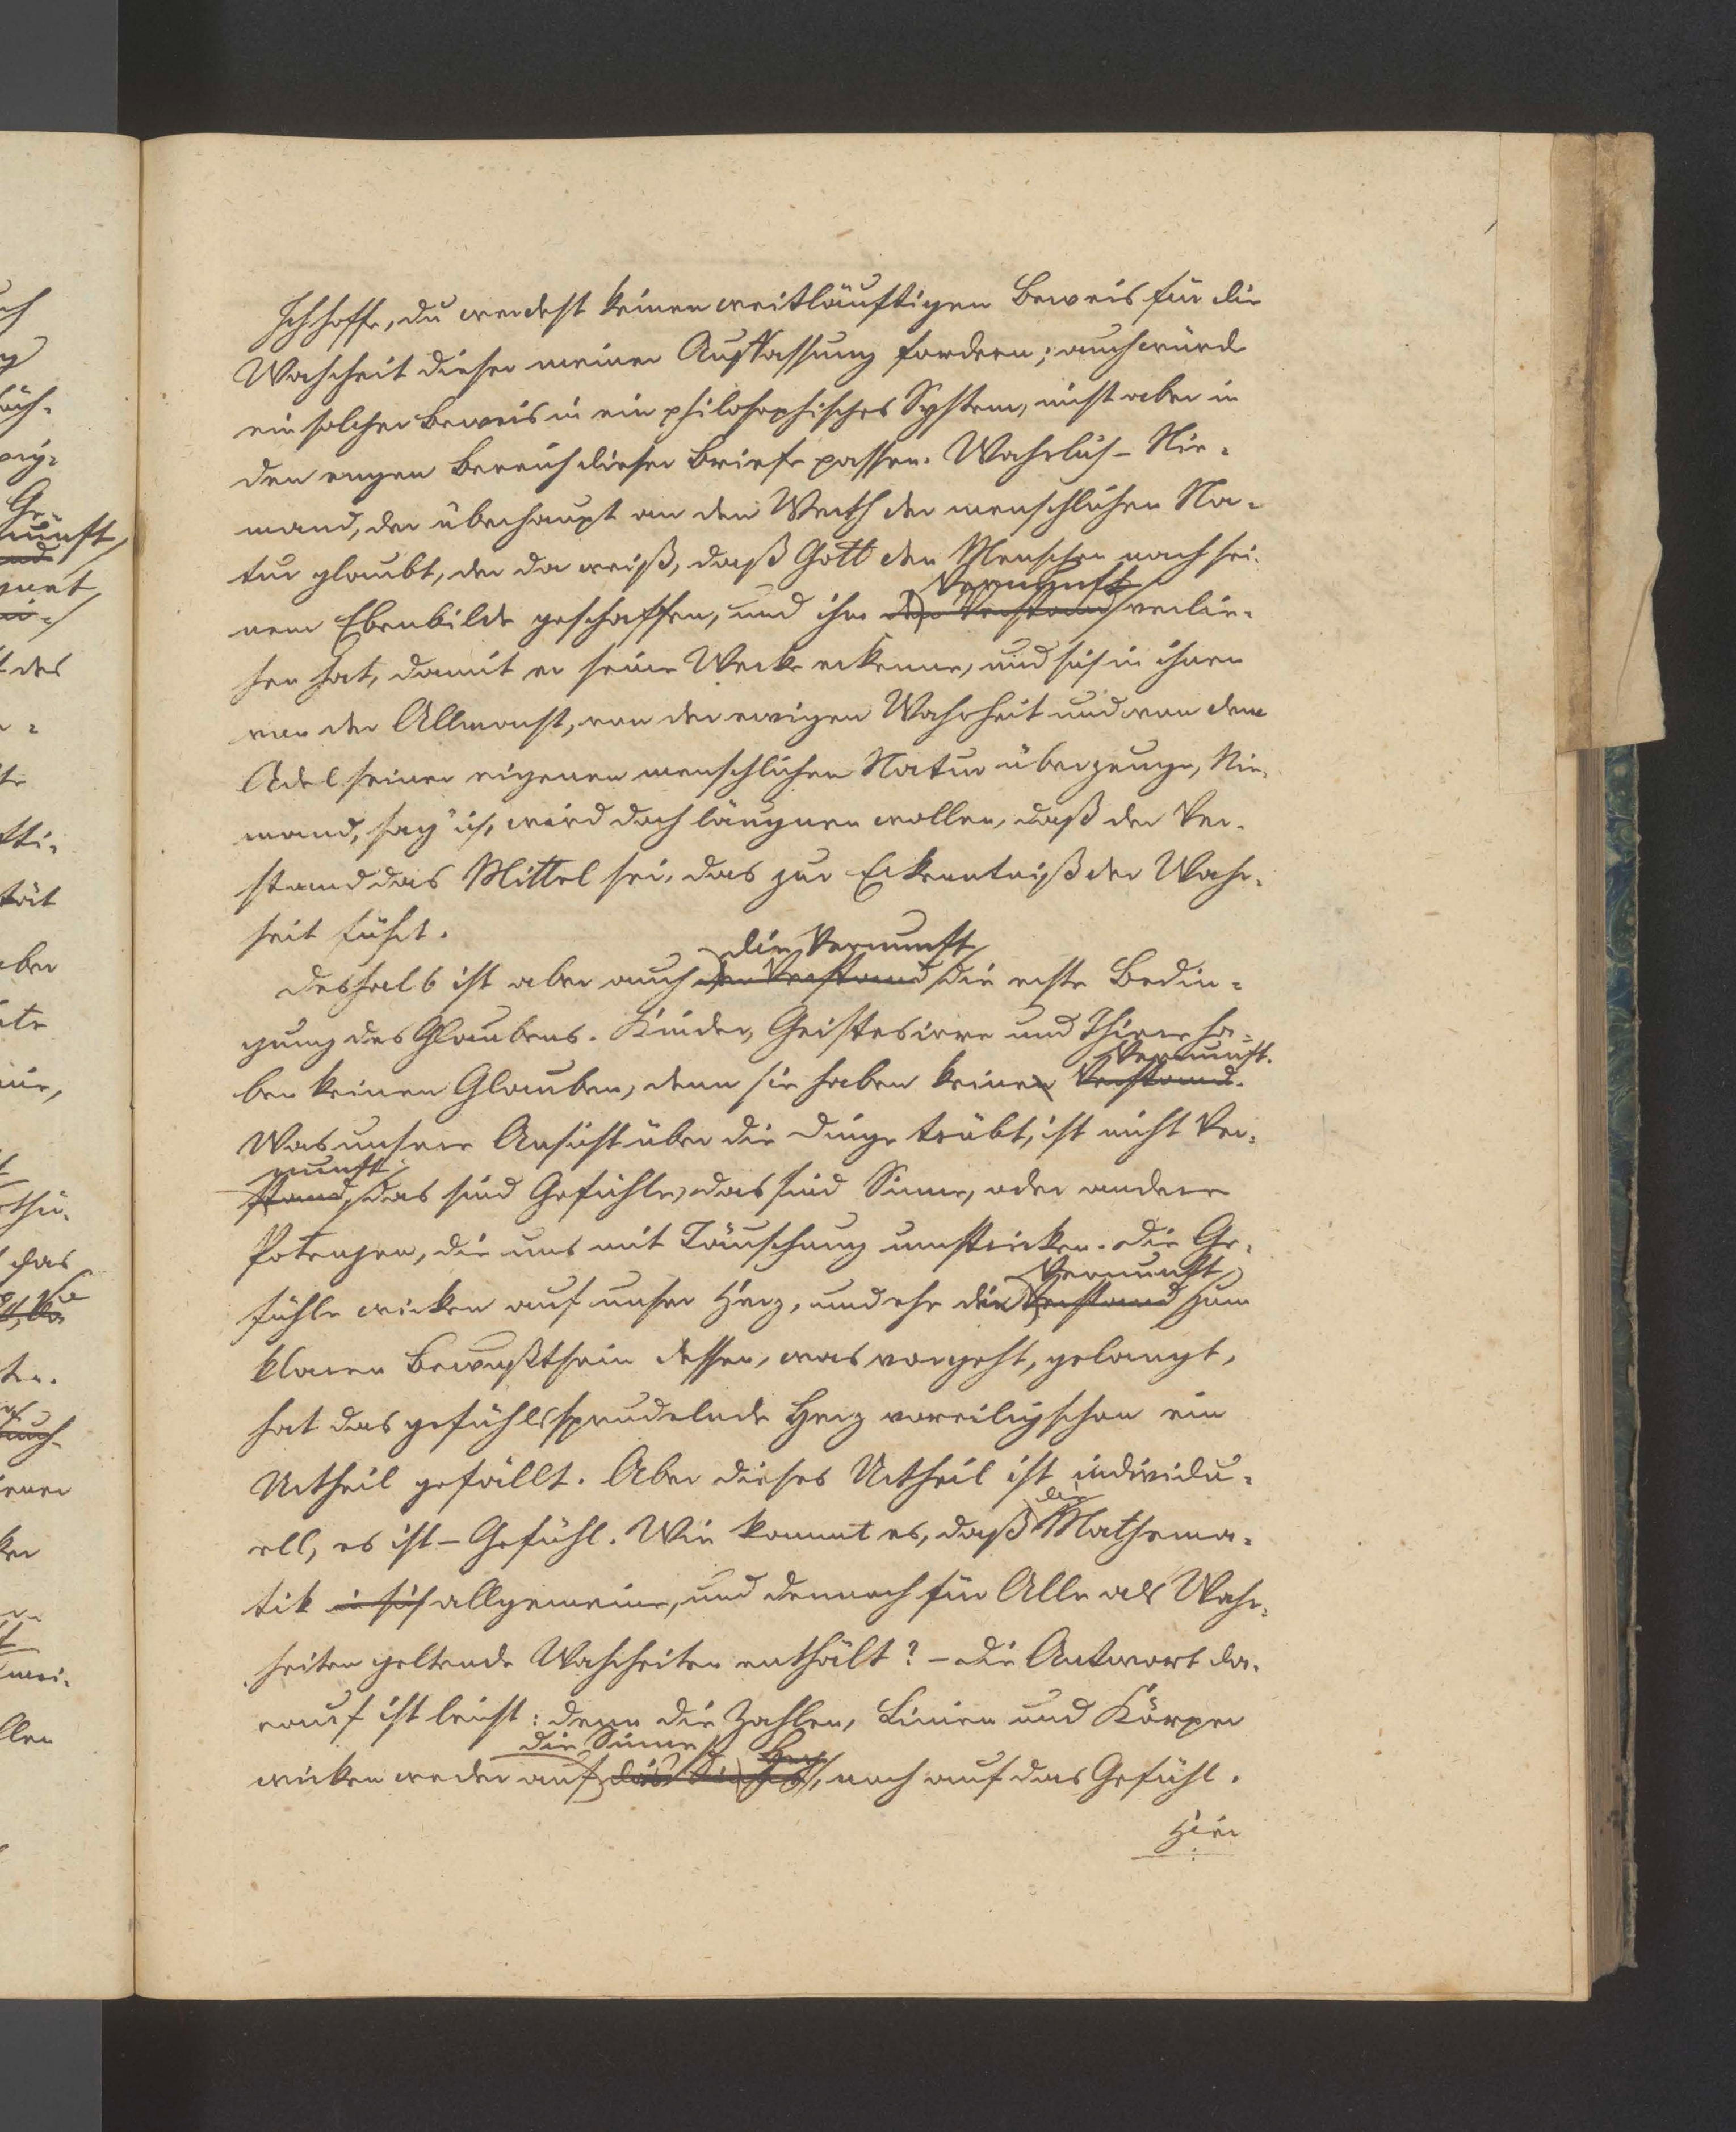 Ich hoffe, du werdest keinen weitläuftigen Beweis für die
Wahrheit dieser meiner Auffassung fordern; auch würde
ein solcher Beweis in ein philosophisches System, nicht aber in
den engen Bereich dieser Briefe passen. Wahrlich – Nie-
mand, der überhaupt an den Werth der menschlichen Na-
tur glaubt, der da weiß, daß Gott den Menschen nach sei-
Vernunft
nem Ebenbilde geschaffen, und ihm den Verstand verlie-
hen hat, damit er seine Werke erkenne, und sich in ihnen
von der Allmacht, von der ewigen Wahrheit und von dem
Adel seiner eigenen menschlichen Natur überzeuge, Nie-
mand, sag' ich, wird doch läugnen wollen, daß der Ver-
stand das Mittel sei, das zur Erkenntniß der Wahr-
heit führt.
die Vernunft
Deshalb ist aber auch der Verstand die erste Bedin-
gung des Glaubens. Kinder, Geistesirre und Thiere ha-
Vernunft.
ben keinen Glauben, denn sie haben keinen Verstand.
Was unsere Ansicht über die Dinge trübt, ist nicht Ver-
nunft,
stand, das sind Gefühle, das sind Sinne, oder andere
Potenzen, die uns mit Täuschung umstricken. Die Ge-
Vernunft
fühle wirken auf unser Herz, und ehe die Verstand zum
klaren Bewußtsein dessen, was vorgeht, gelangt,
hat das gefühlssprudelnde Herz voreilig schon ein
Urtheil gefällt. Aber dieses Urtheil ist individu-
die
ell, es ist – Gefühl. Wie kommt es, daß Mathema-
tik in sich allgemeine, und dennoch für Alle als Wahr-
heiten geltende Wahrheiten enthält? – Die Antwort da-
rauf ist leicht: denn die Zahlen, Linien und Körper
die Sinne Herz
wirken weder auf das, noch auf das Gefühl.
Hier
uch
Ge-
nunft,
gnet
des
tät
aber
das
ten.
llen